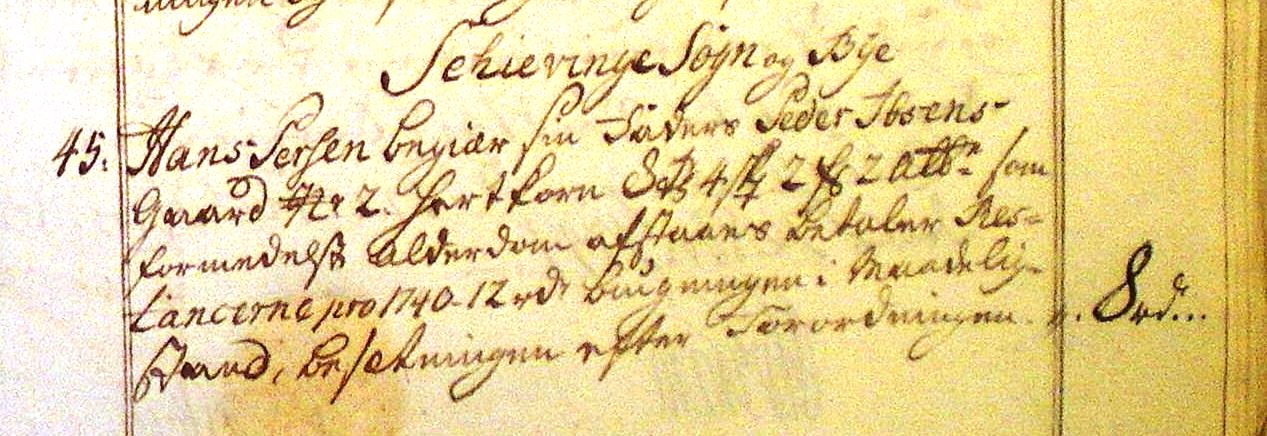 Schievinge Sogn og Bye
45. Hans Persen begiær sin Faders Peder Ibsens
Gaard No 2. Hertkorn 8 td 4 skp 2 fk 2 alb. som
formedelst Alderdom afstaaes betaler Res=
tancerne pro 1740 12 rd. bugningen i Maadelig
Stand, besetningen efter Forordningen. 8 rd..